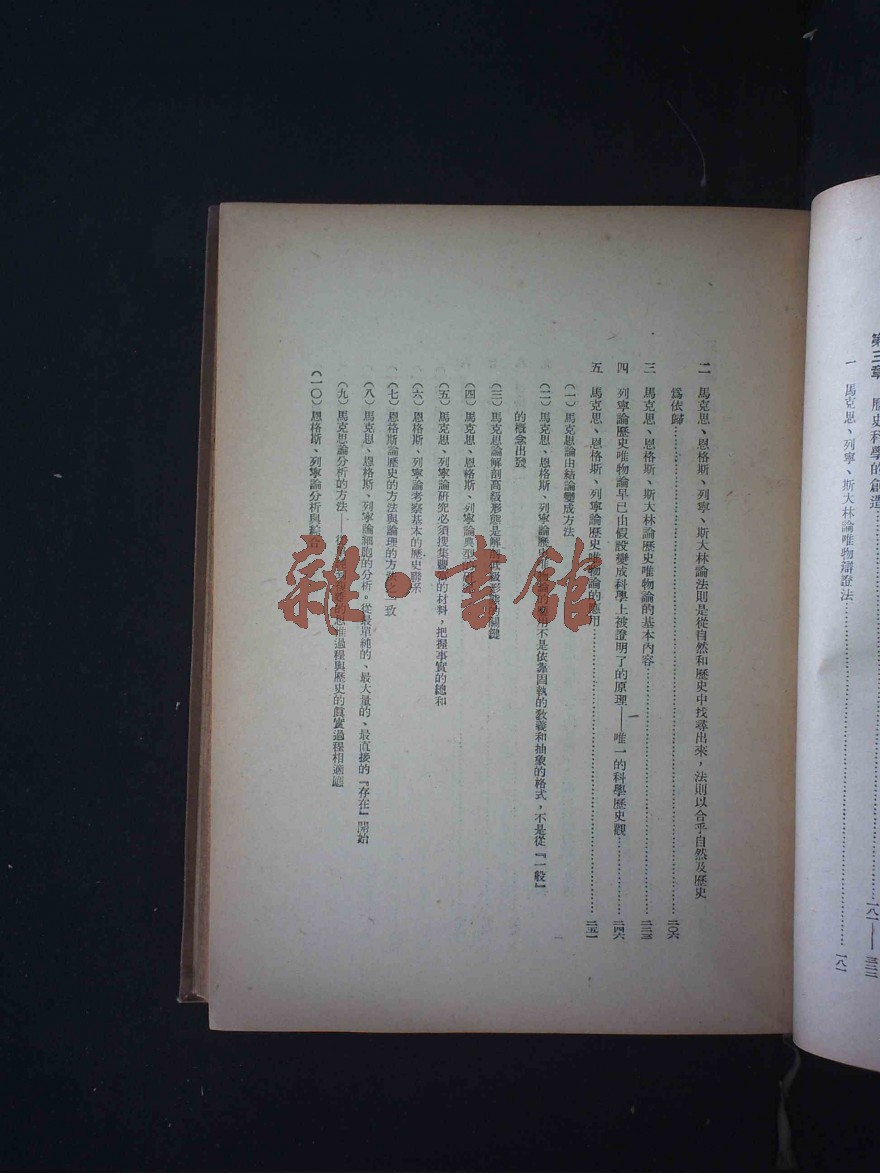 第三章　歷史科學的創造……一八一——三三二
一　馬克思、列寧、斯大林論唯物辯證法……一八一
二　馬克思、恩格斯、列寧、斯大林論法則是從自然和歷史中找尋出來，法則以合乎自然及歷史
為依歸……二〇六
三　馬克思、恩格斯、斯大林論歷史唯物論的基本內容……二三三
四　列寧論歷史唯物論早已由假設變成科學上被證明了的原理——唯一的科學歷史觀……二四六
五　馬克思、恩格斯、列寧論歷史唯物論的應用……二五一
（一）馬克思論由結論變成方法
（二）馬克思、恩格斯、列寧論歷史唯物論的應用不是依靠固執的教義和抽象的格式，不是從『一般』
的概念出發
（三）馬克思論解剖高級形態是解剖低級形態的關鍵
（四）馬克思、恩格斯、列寧論典型的
（五）馬克思、列寧論研究必須搜集豐富的材料，把握事實的總和
（六）恩格斯、列寧論考察基本的歷史聯系
（七）恩格斯論歷史的方法與論理的方法之一致
（八）馬克思、恩格斯、列寧論細胞的分析。從最單純的、最大量的、最直接的『存在』開始
（九）馬克思論分析的方法——的思維過程與歷史的真實過程相適應
（一〇）恩格斯、列寧論分析與綜合
雜·書館